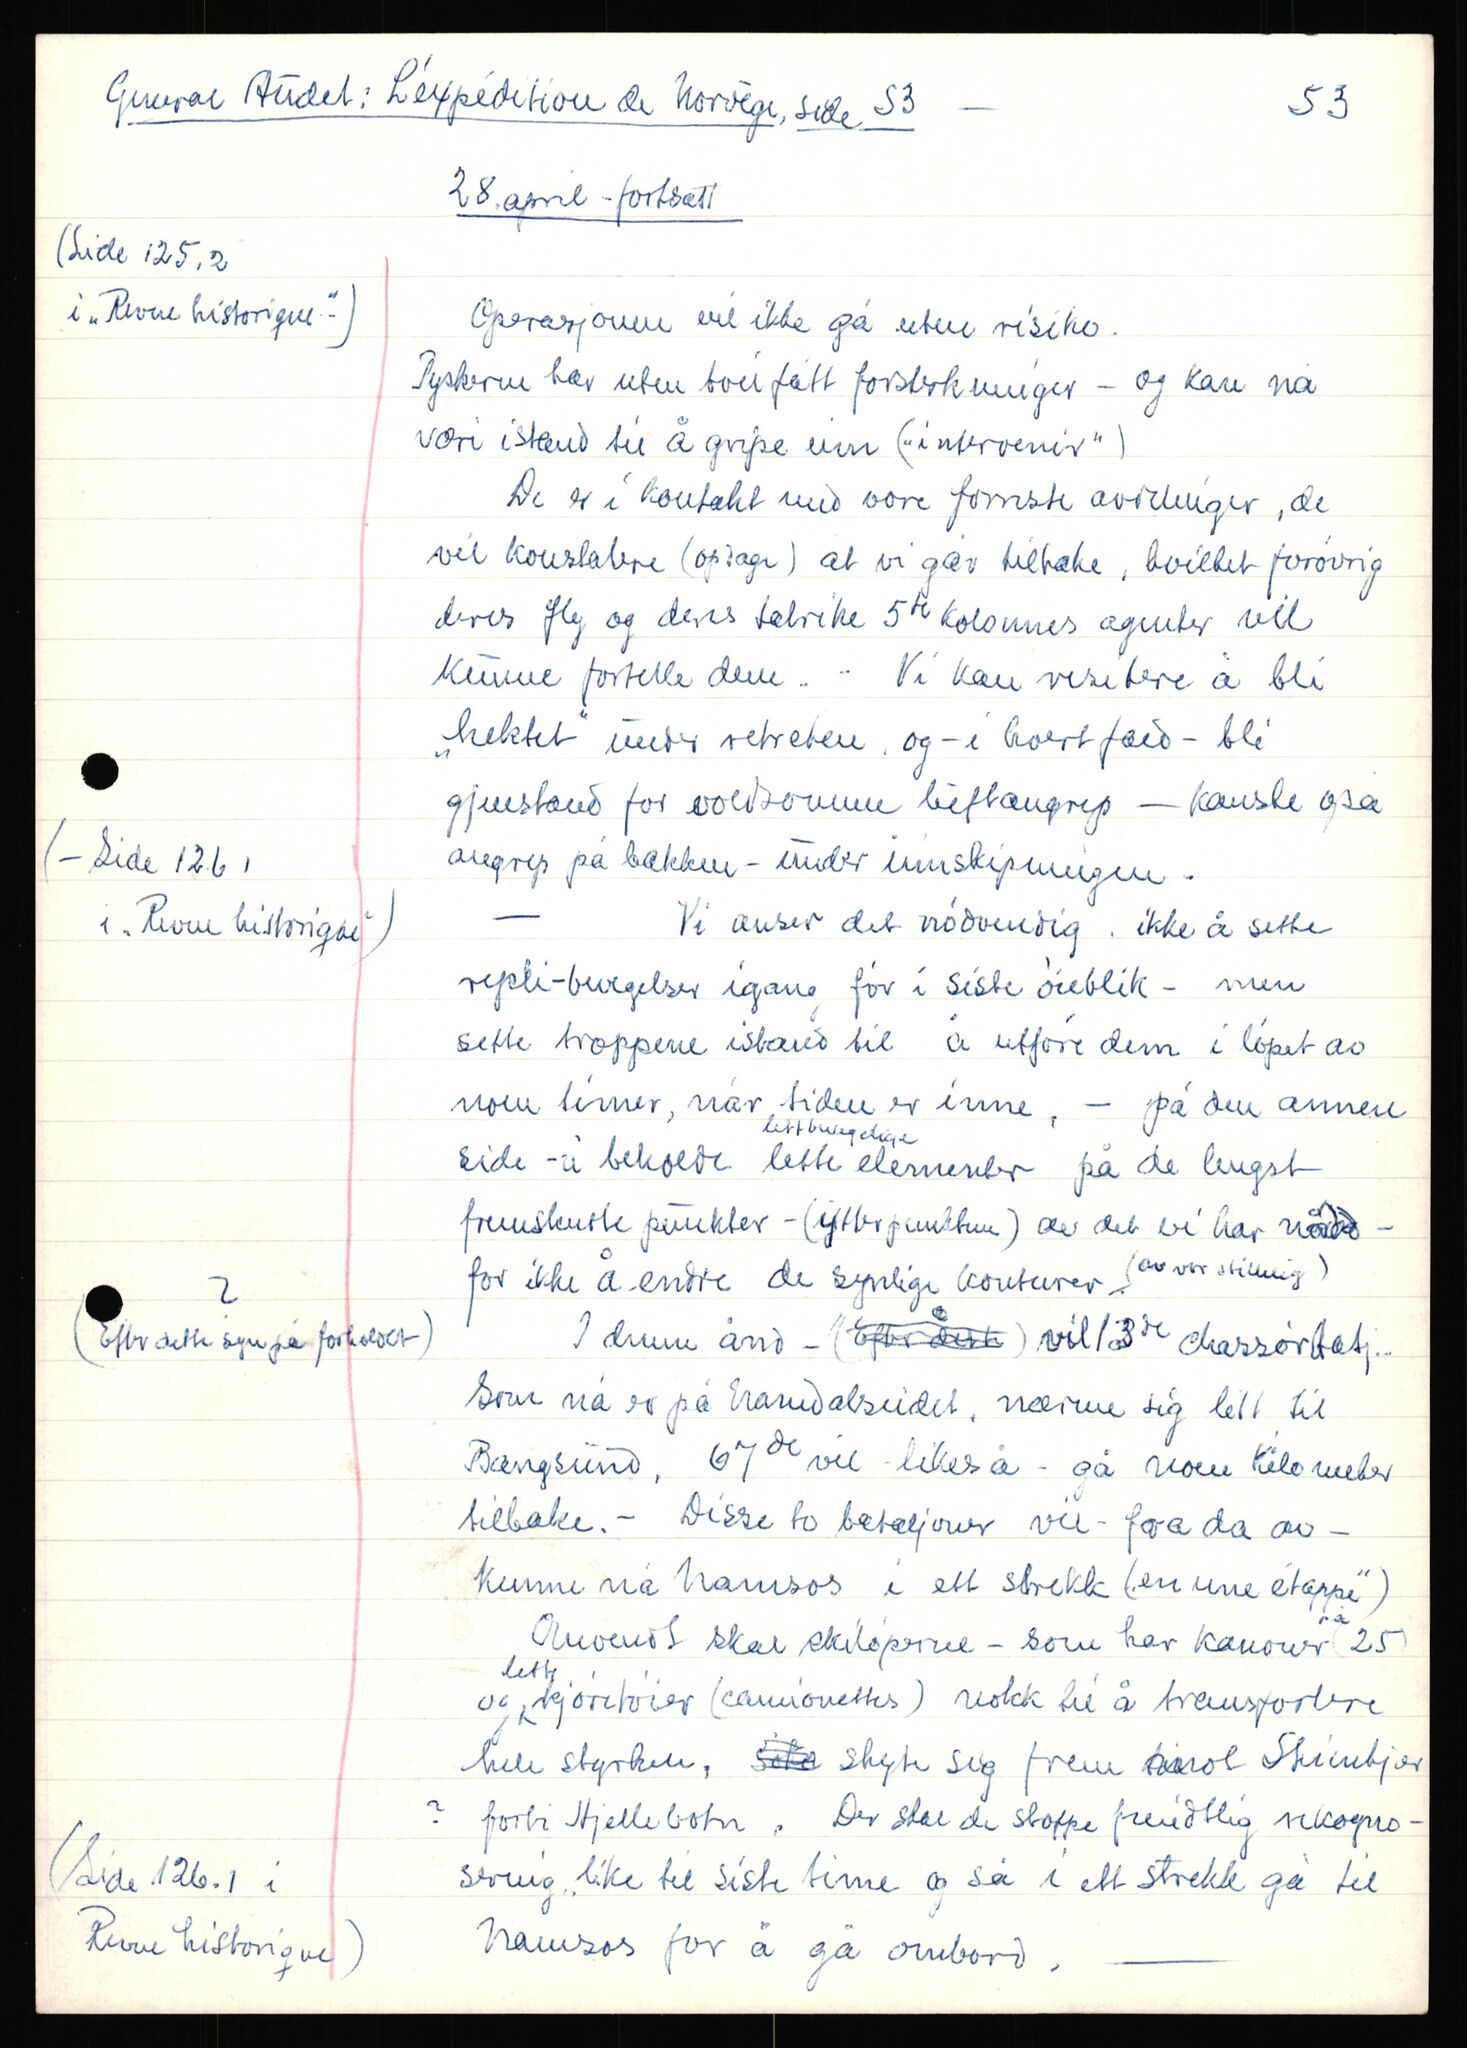 General Audet: L'éxpédition de Norvège, side 53 — 53
28. april - fortsatt
(Side 125,2
i „Revue historique")
Operasjonen vil ikke gå uten risiko.
Tyskerne har uten tvil fått forsterkninger - og kan nå
være istand til å gripe inn („intervenir")
De er i kontakt med våre fornmste avdelinger, de
vil konstatere (opdage) at vi går tilbake, hvilket forøvrig
deres fly og deres talrike 5te kolonnes agenter vil
kunne fortelle dem. - Vi kan resikere å bli
„hektet" under retreten, og - i hvert fald - bli
gjenstand for voldsomme luftangrep — kanske også
(- Side 126,1
angrep på bakken - under innskipningen.
i „Revue historique")
— Vi anser det nødvendig, ikke å sette
repli-bevegelser igang før i siste øieblik - men
sette troppene istand til å utføre dem i løpet av
noen timer, når tiden er inne, - på den annen
lettbevegelige
side - å beholde lette elementer på de lengst
fremskutte punkter - (ytterpunktene) av det vi har nådd -
for ikke å endre de synlige konturer (av vår stilling)
?
(Efter dette syn på forholdet)
I denne ånd - (Efter dette) vil 13de chassørbatj.
som nå er på Namdalseidet, nærme sig lett til
Bangsund, 67de vil - likeså - gå noen kilometer
tilbake. - Disse to bataljoner vil - fra da av -
kunne nå Namsos i ett strekk („en une étappe")
Omvendt skal skiløperne - som har kanoner på 25
og lette kjøretøier (camionettes) nokk til å transportere
hele styrken, skyte sig frem imot Steinkjer
? forbi Hjellebotn. Der skal de stoppe fiendtlig rekogno-
(Side 126.1 i
sering, like til siste time og så i ett strekk gå til
Revue historique)
Namsos for å gå ombord. —